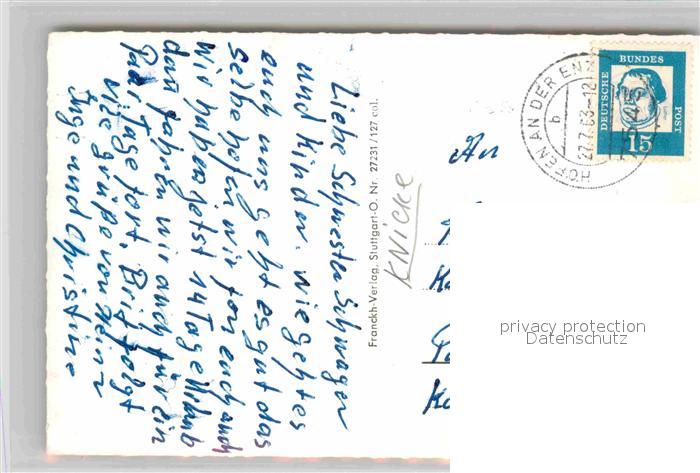 Liebe Schwester Schwager
und Kinder. wie geht es
euch uns geht es gut das
selbe hofen wir fon euch auch
Wir haben getzt 14 Tage Urlaub
dan fahren wir auch für ein
Paar Tage fort. Brif folgt
viele grüße von Heinz
Inge und Christine
Franckh-Verlag, Stuttgart-O. Nr. 27231/127 col.
KNicke
An
HOFEN AN DER ENZ
b
27.7.63-12
DEUTSCHE
BUNDES
POST
15
privacy protection
Datenschutz